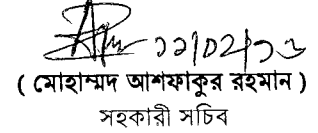 ১১/০২/১৬
( মোহাম্মদ আশফাকুর রহমান )
সহকারী সচিব